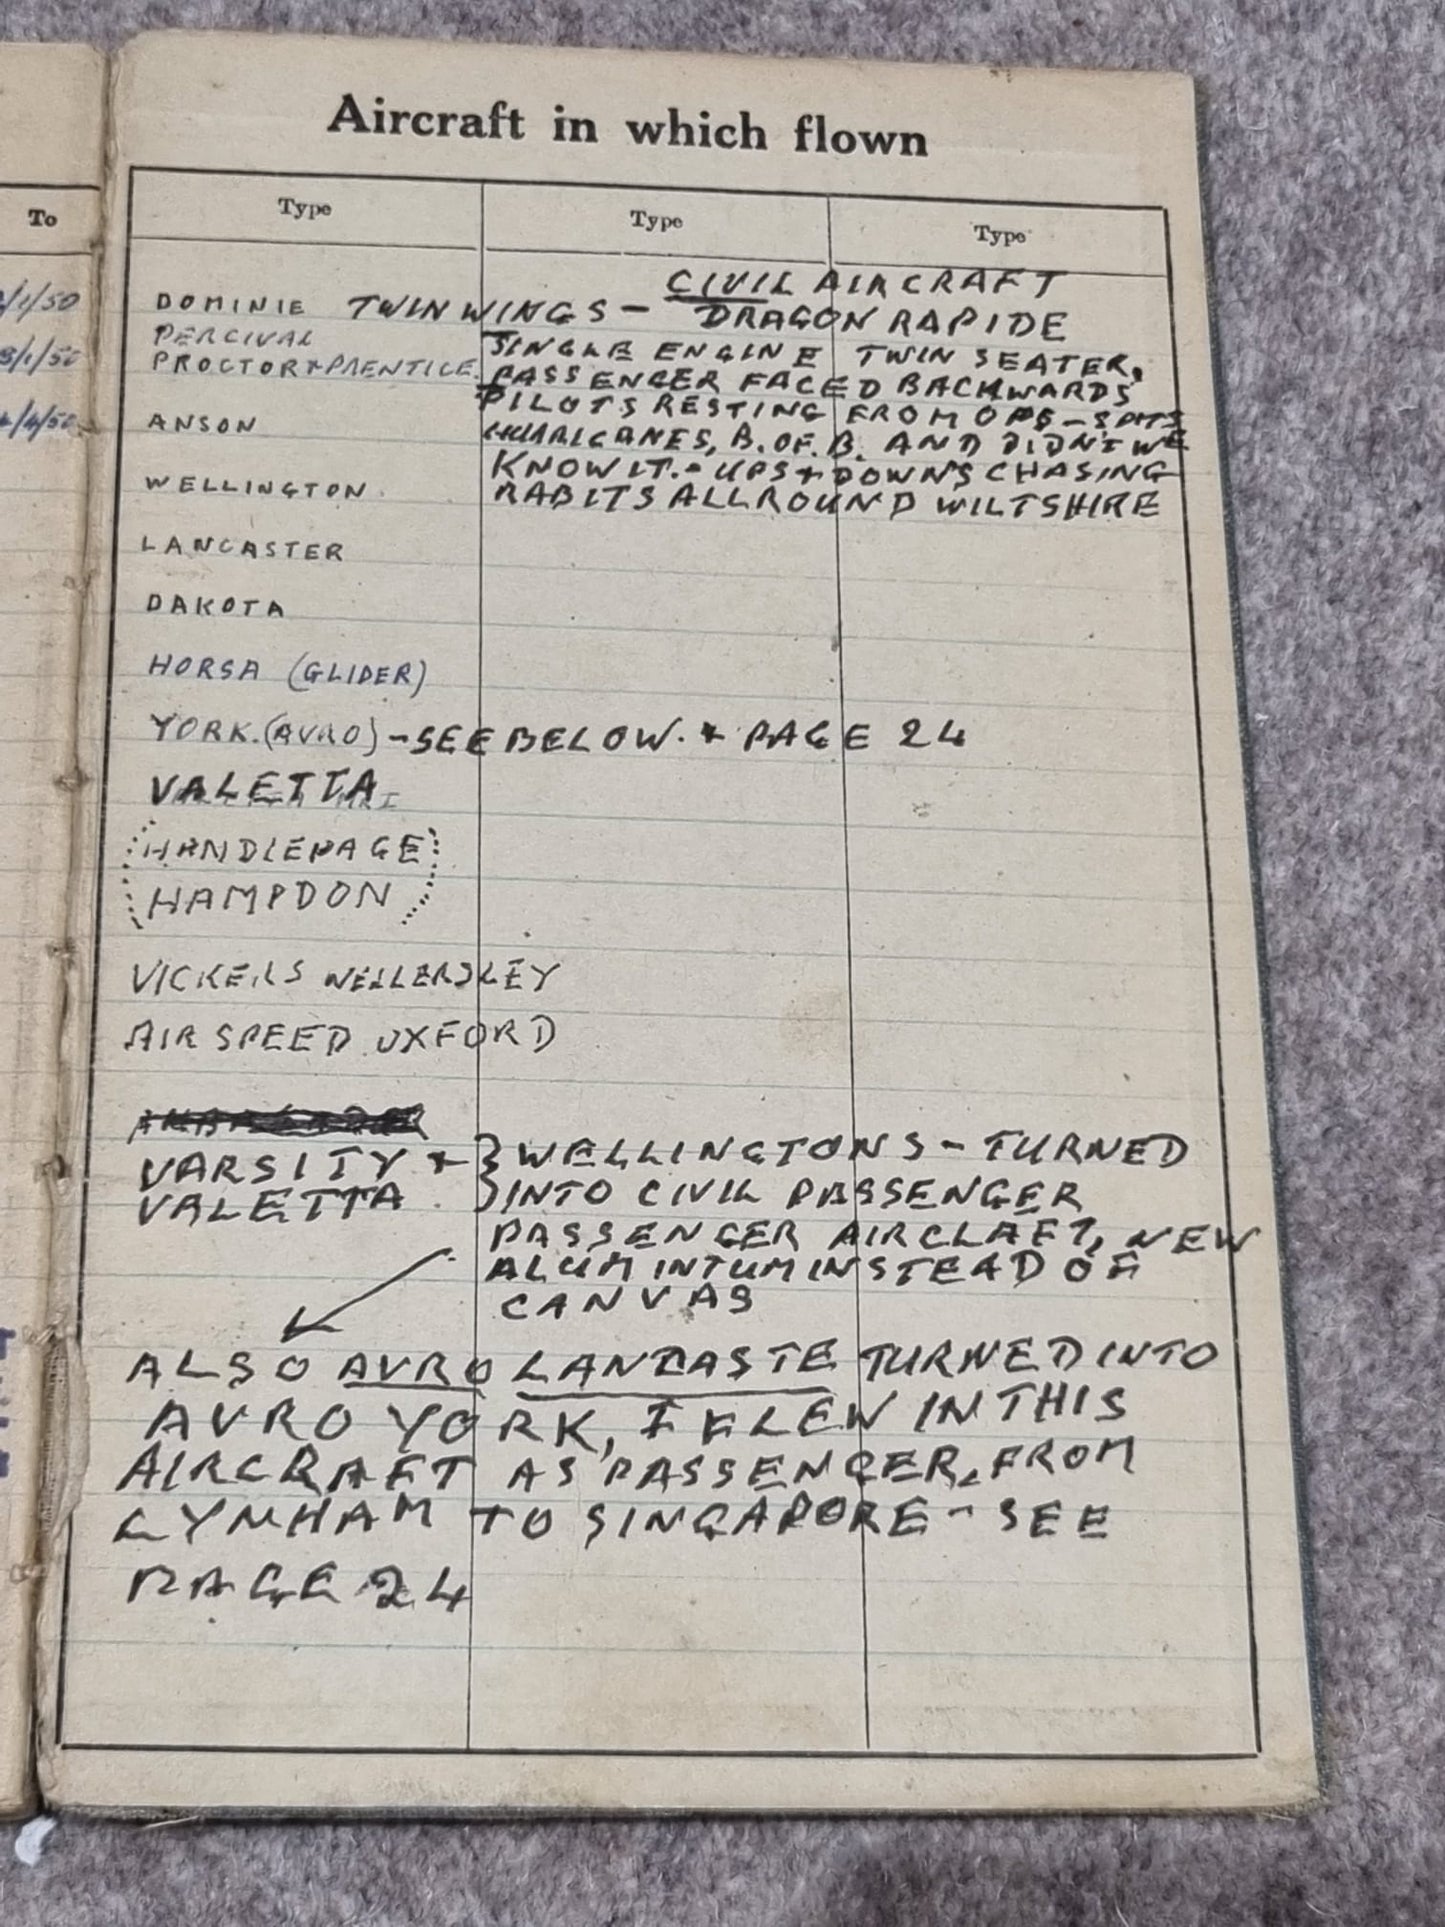 Aircraft in which flown
To
Type Type Type
/1/50
CIVIL AIRCRAFT
DOMINIE TWIN WINGS - DRAGON RAPIDE
PERCIVAL
PROCTOR + PRENTICE. SINGLE ENGINE TWIN SEATER,
PASSENGER FACED BACKWARDS
PILOTS RESTING FROM OPS - SPITS
ANSON HURRICANES, B. OF. B. AND DIDN'T WE
KNOW IT. - UPS + DOWNS CHASING
WELLINGTON. RABITS ALL ROUND WILTSHIRE
LANCASTER
DAKOTA
HORSA (GLIDER)
YORK. (AVRO) - SEE BELOW. + PAGE 24
VALETTA
HANDLEPAGE
HAMPDON
VICKERS WELLERSLEY
AIRSPEED OXFORD
VARSITY + } WELLINGTONS - TURNED
VALETTA . } INTO CIVIL PASSENGER
PASSENGER AIRCLAFT, NEW
ALUMINIUM INSTEAD OF
CANVAS
ALSO AVRO LANCASTE TURNED INTO
AVRO YORK, I FLEW IN THIS
AIRCRAFT AS PASSENGER, FROM
LYNHAM TO SINGAPORE - SEE
PAGE 24